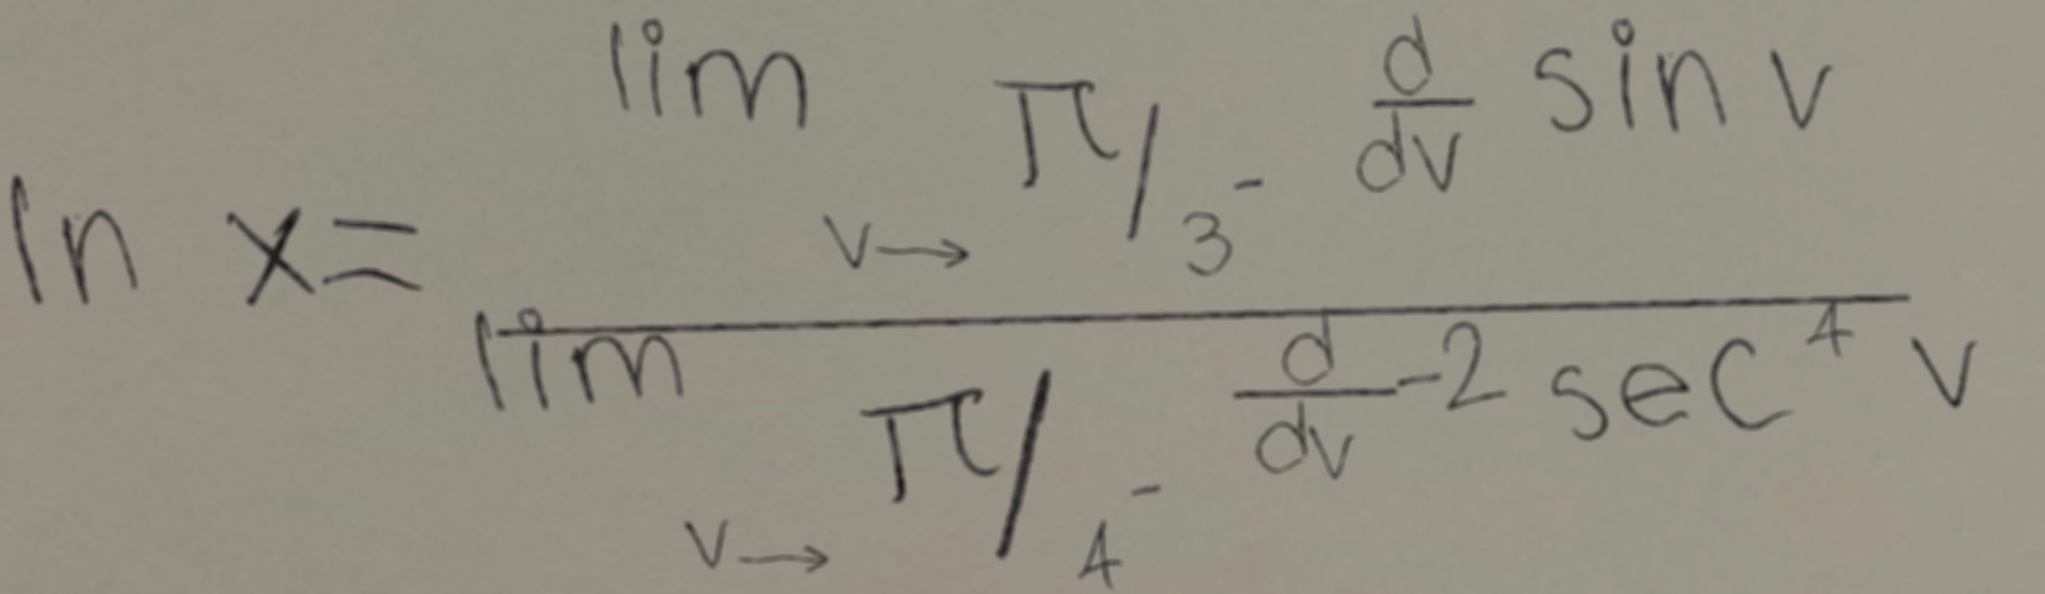 ln x = lim v→π/3⁻ d/dv sin v
lim v→π/4⁻ d/dv -2 sec⁴ v